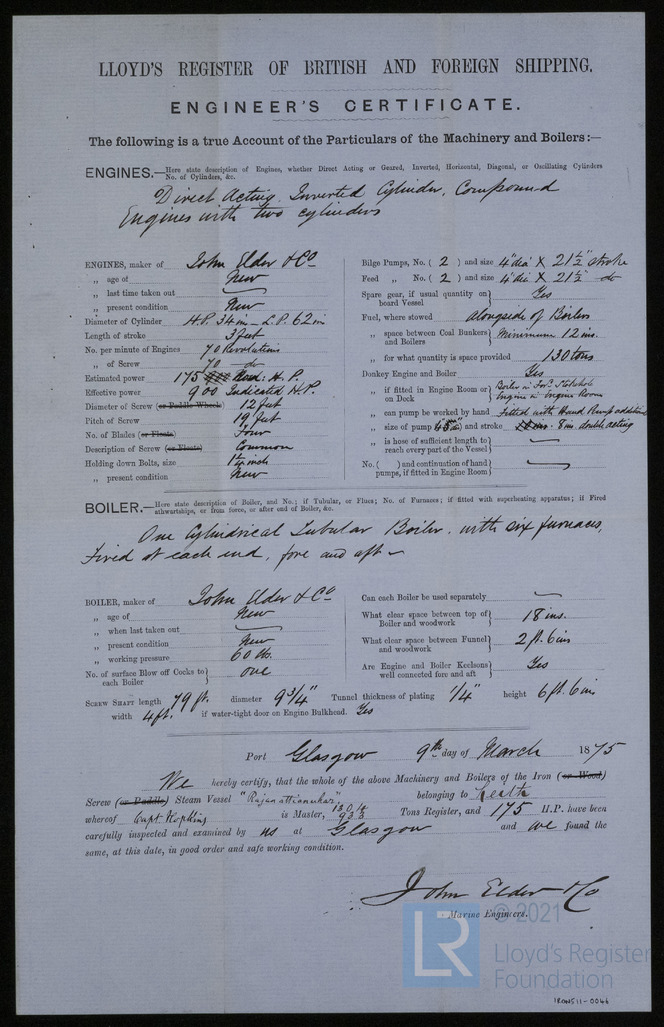 LLOYD'S REGISTER OF BRITISH AND FOREIGN SHIPPING.
ENGINEER'S CERTIFICATE.
The following is a true Account of the Particulars of the Machinery and Boilers:—
ENGINES.—Here state description of Engines, whether Direct Acting or Geared, Inverted, Horizontal, Diagonal, or Oscillating Cylinders
No. of Cylinders, &c.
Direct Acting Inverted Cylinder, Compound
Engines with two cylinders
ENGINES, maker of John Elder & Co
" age of New
" last time taken out
" present condition New
Diameter of Cylinder H.P. 34 in – L.P. 62 in
Length of stroke 3 feet
No. per minute of Engines 70 Revolutions
" of Screw 70 do
Estimated power 175 H.P.
Effective power 900 Indicated H.P.
Diameter of Screw (or Paddle Wheels) 12 feet
Pitch of Screw 19 feet
No. of Blades (or Floats) Four
Description of Screw (or Floats) Common
Holding down Bolts, size
" present condition New
Bilge Pumps, No. ( 2 ) and size 4" dia X 21 1/2" stroke
Feed " No. ( 2 ) and size 4" dia X 21 1/2" do
Spare gear, if usual quantity on board Vessel Yes
Fuel, where stowed alongside of Boilers
" space between Coal Bunkers and Boilers Minimum 12 ins.
" for what quantity is space provided 130 tons
Donkey Engine and Boiler Yes
" if fitted in Engine Room or on Deck Boiler in For'd Stokehole Engine in Engine Room
" can pump be worked by hand Fitted with Hand Pump additional
" size of pump and stroke 8 ins. double acting
" is hose of sufficient length to reach every part of the Vessel
No. ( ) and continuation of hand pumps, if fitted in Engine Room
BOILER.—Here state description of Boiler, and No.; if Tubular, or Flues; No. of Furnaces; if fitted with superheating apparatus; if Fired
athwartships, or from force, or after end of Boiler, &c.
One Cylindrical Tubular Boiler, with six furnaces,
Fired at each end, fore and aft
BOILER, maker of John Elder & Co
" age of New
" when last taken out
" present condition New
" working pressure 60 lbs.
No. of surface Blow off Cocks to each Boiler one
Can each Boiler be used separately
What clear space between top of Boiler and woodwork 18 ins.
What clear space between Funnel and woodwork 2 ft. 6 ins
Are Engine and Boiler Keelsons well connected fore and aft Yes
SCREW SHAFT length 79 ft. diameter 9 3/4" Tunnel thickness of plating 1/4" height 6 ft. 6 in
width 4 ft. if water-tight door on Engine Bulkhead. Yes
Port Glasgow 9th day of March 1875
We hereby certify, that the whole of the above Machinery and Boilers of the Iron (or Wood)
Screw (or Paddle) Steam Vessel "Rajanattianuhar" belonging to Leith
whereof Capt. Hopkins is Master, Tons Register, and 175 H.P. have been
carefully inspected and examined by us at Glasgow and we found the
same, at this date, in good order and safe working condition.
John Elder & Co
Marine Engineers.
© 2021
LR
Lloyd's Register
Foundation
IRON511-0046